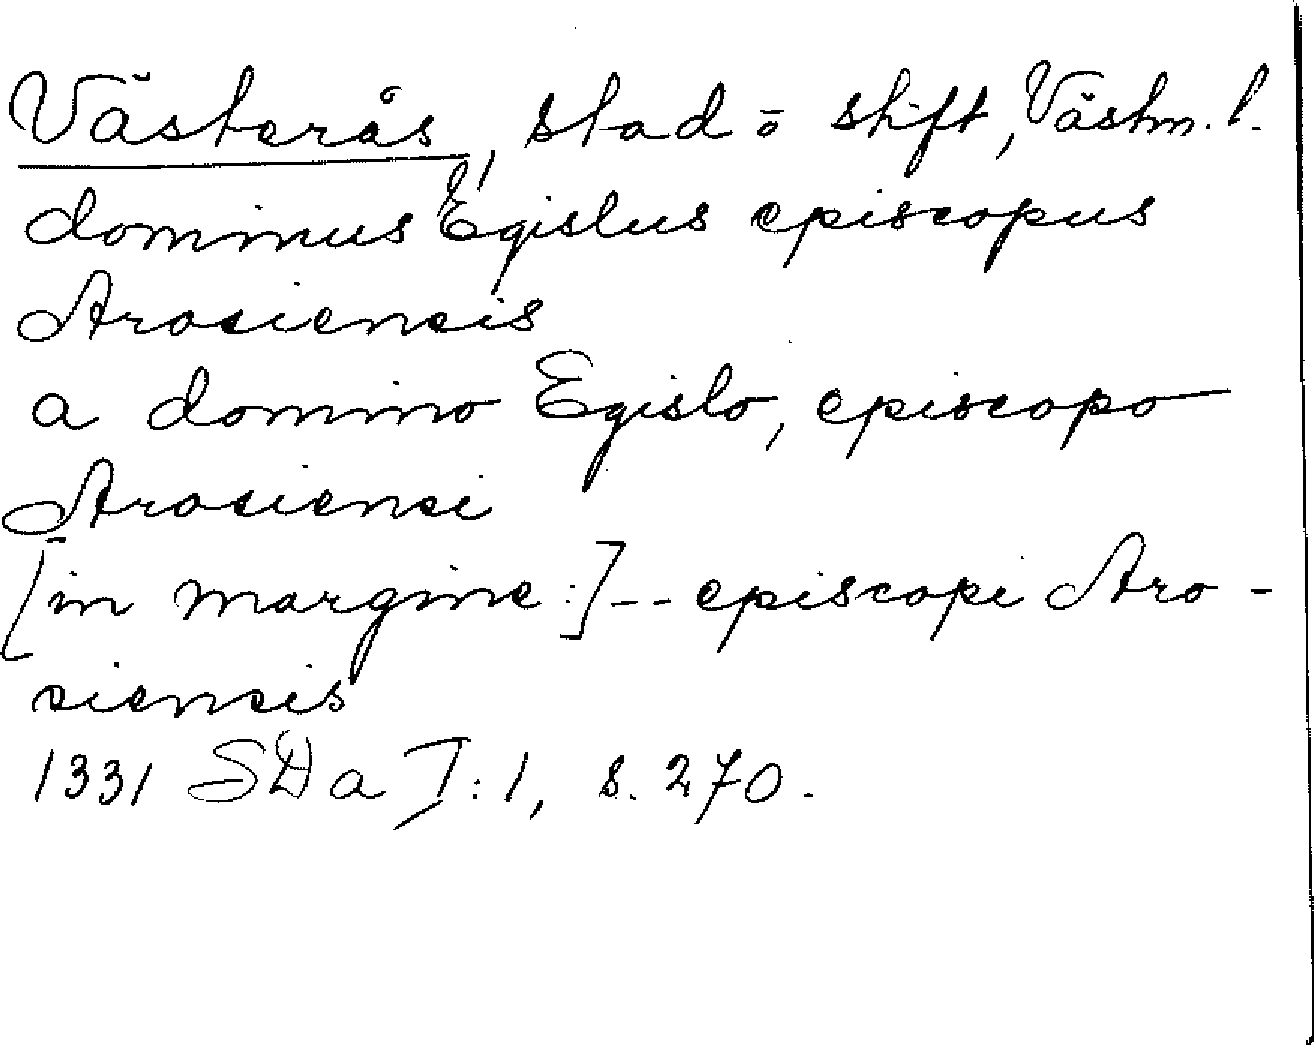 Västerås, stad o stift, Västm. l.
dominus Egislus episcopus
Arosiensis
a domino Egislo, episcopo
Arosiensi
[in margine:] -- episcopi Aro-
siensis
1331 SDa I:1, s. 270.